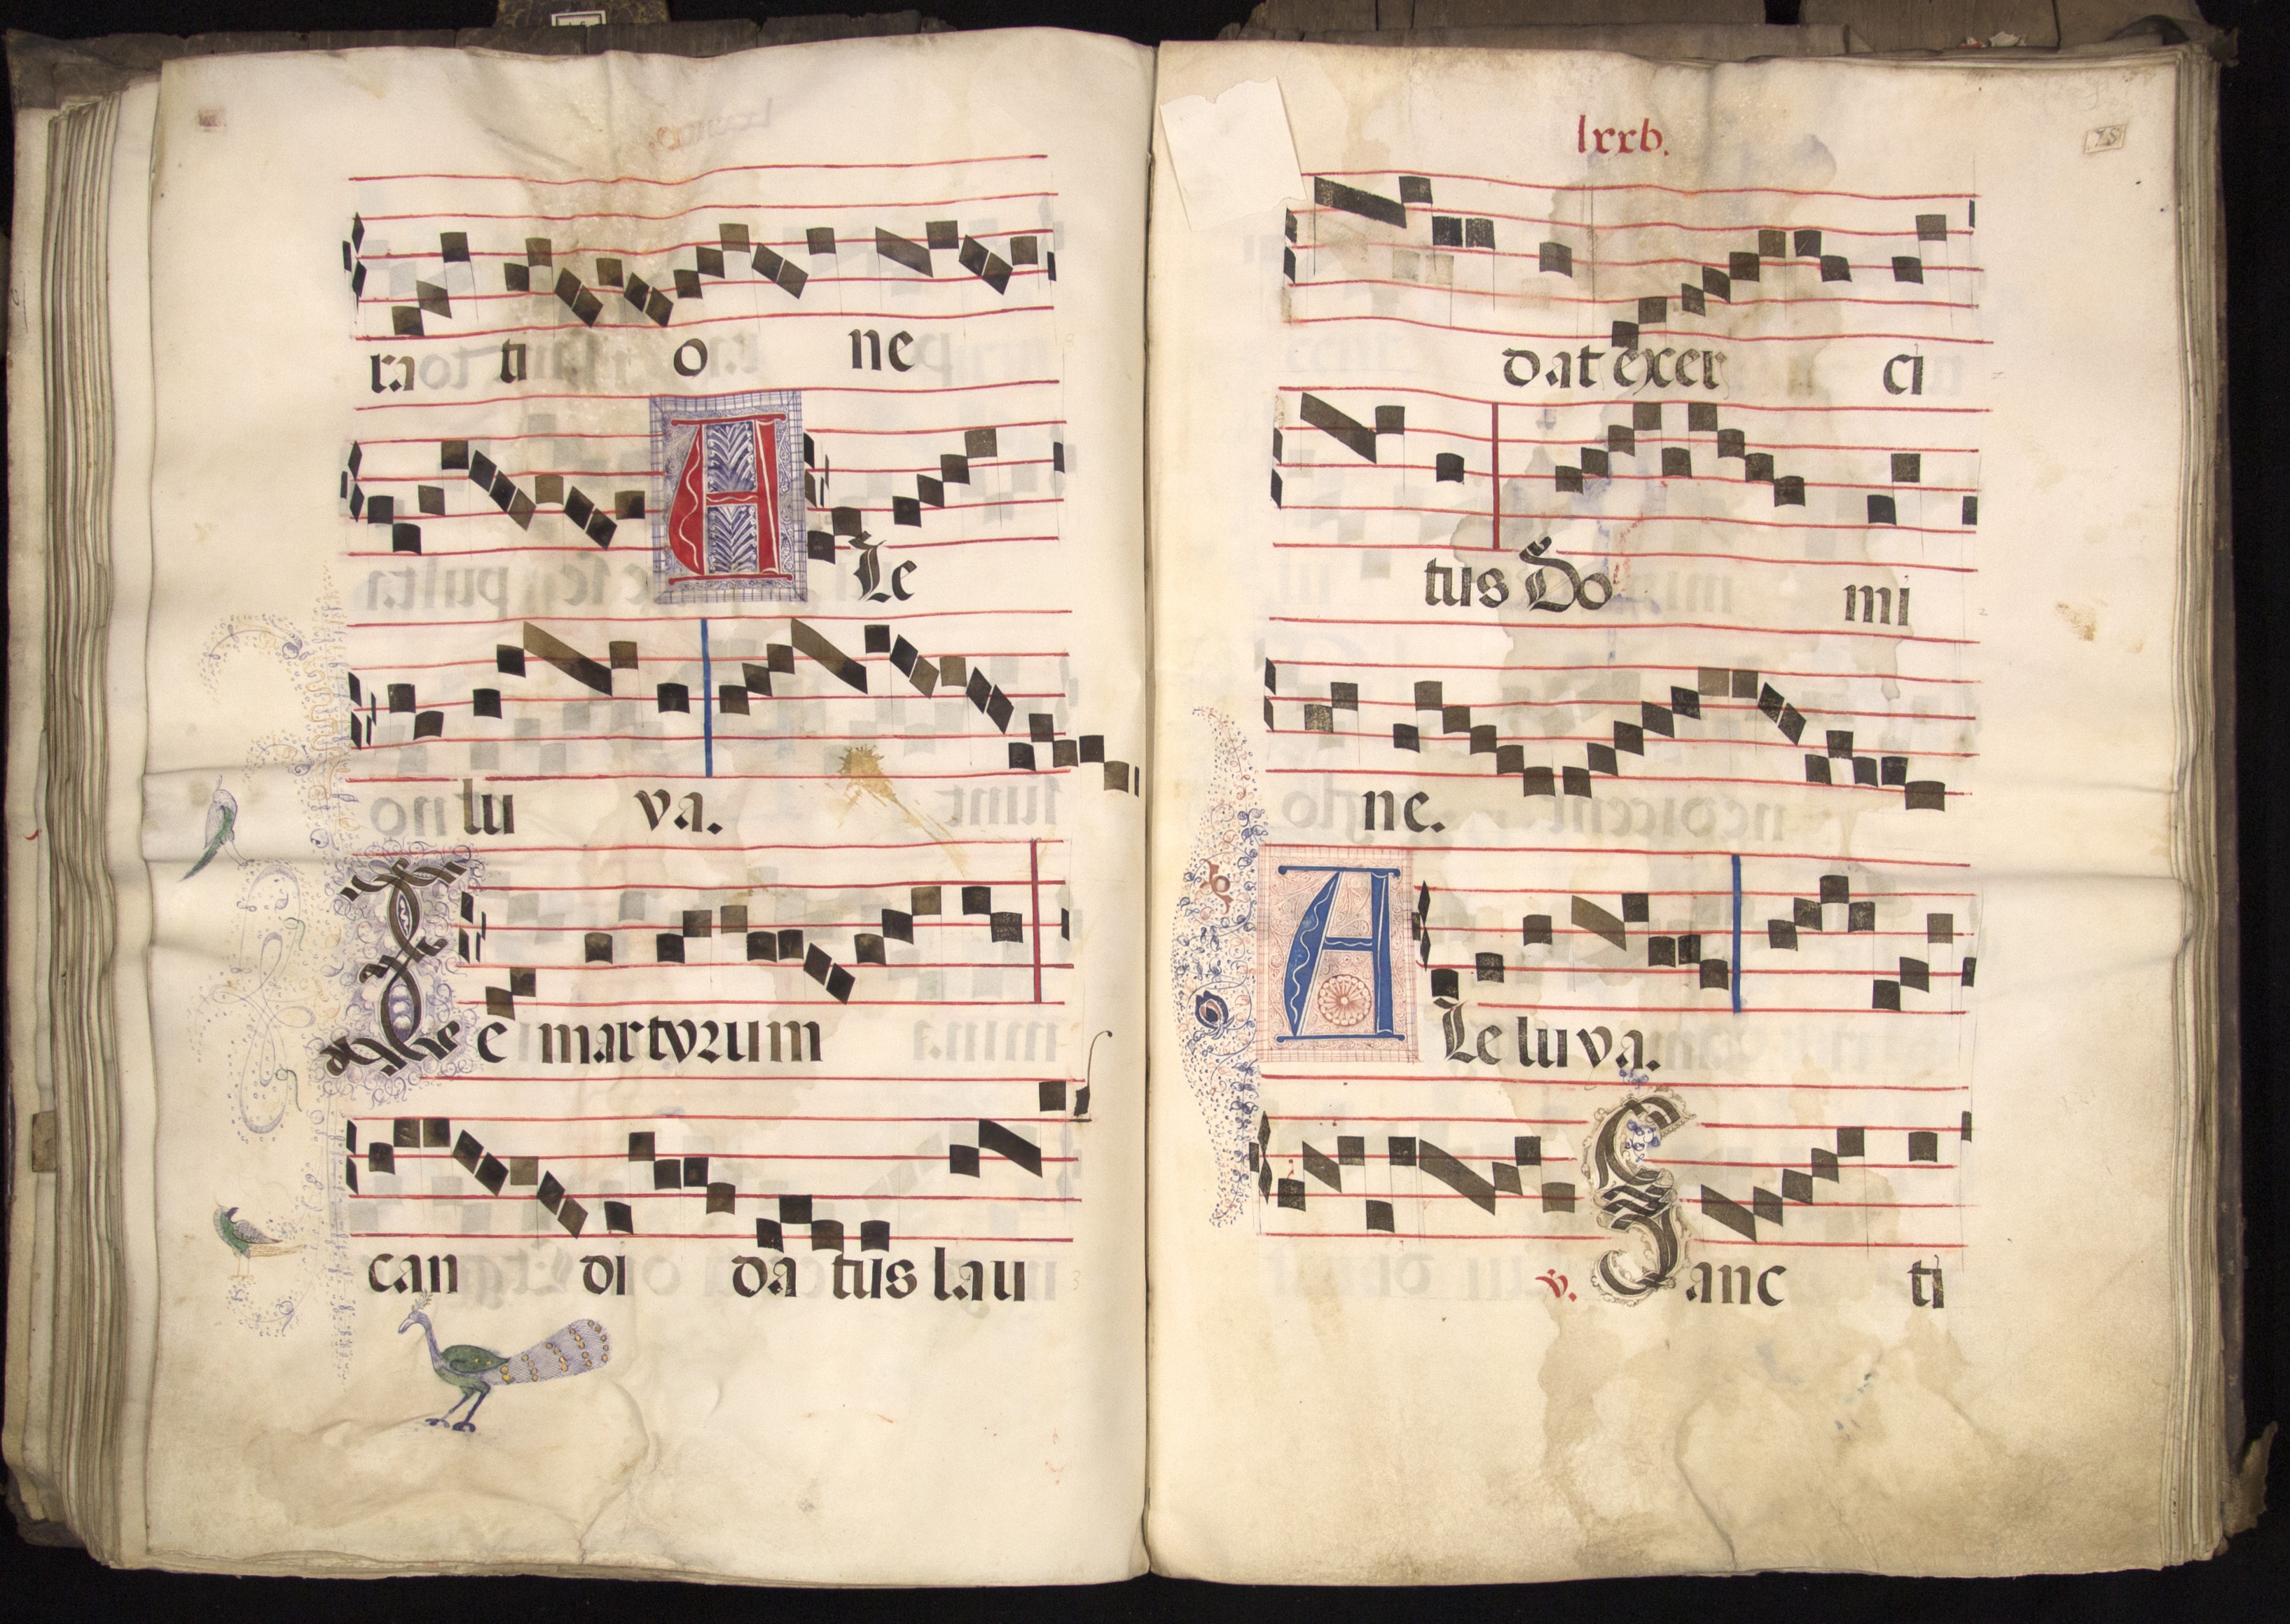 ra ti o ne
A Le
lu ya.
Te e martyrum
can di da tus lau
lxxv.
75
dat exer ci
tus Do mi
ne.
A Le lu ya.
v. Sanc ti